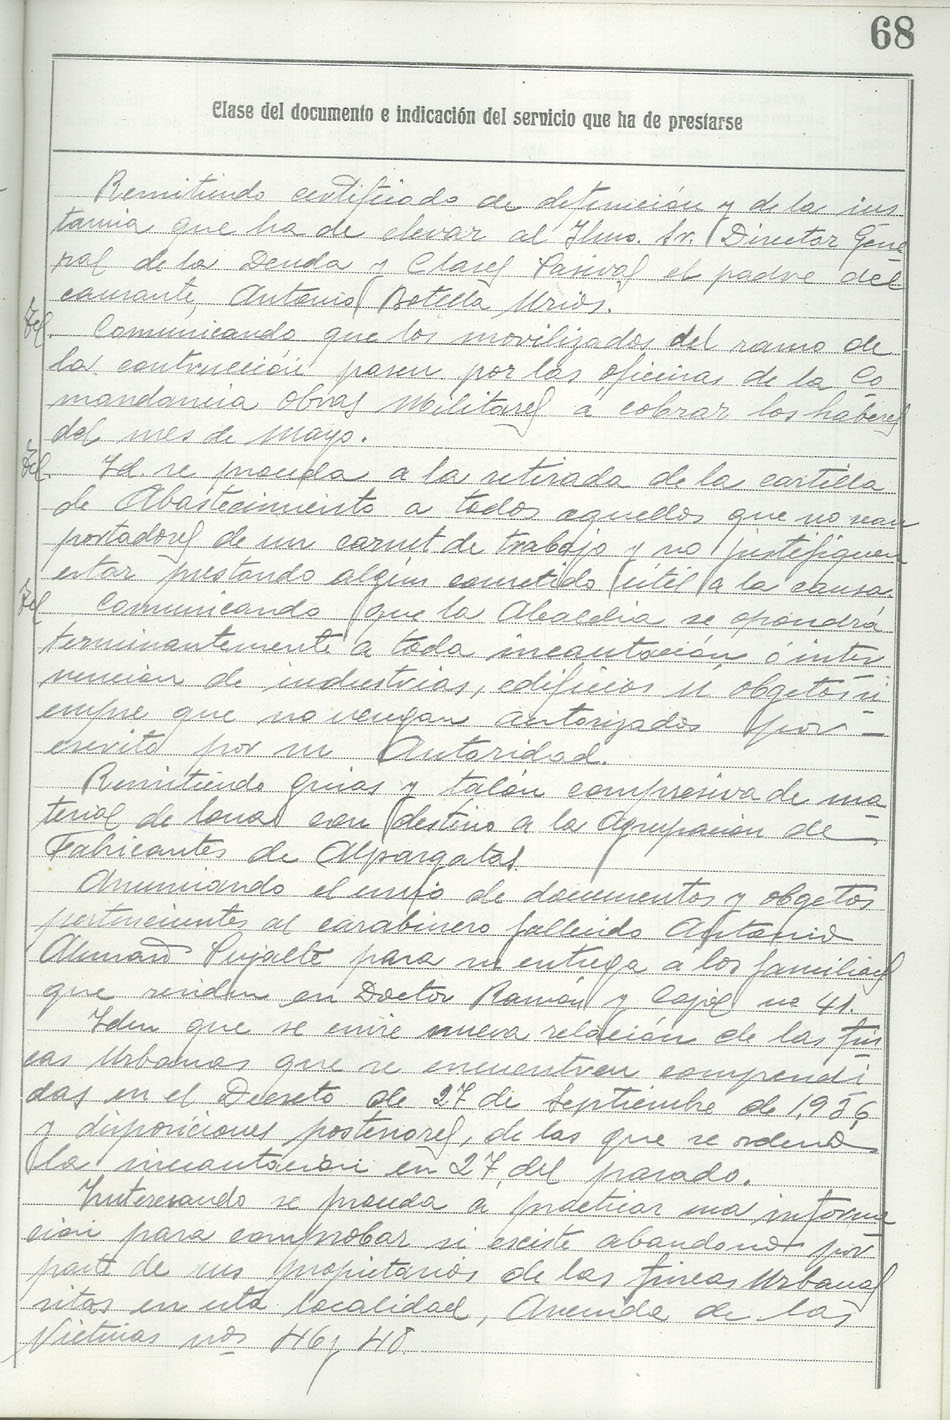 68
Clase del documento e indicación del servicio que ha de prestarse
Remitiendo certificado de defunción y de la ins
tancia que ha de elevar al Ilmo. Sr. Director Gene
ral de la Deuda y Clases Pasivas el padre del
causante, Antonio Botella Urios.
Comunicando que los movilizados del ramo de
la contrucción pasen por las oficinas de la Co
mandancia Obras Militares a cobrar los haberes
del mes de Mayo.
Id. se proceda a la retirada de la cartilla
de Abastecimiento a todos aquellos que no sean
portadores de un carnet de trabajo y no justifiquen
estar prestando algún cometido útil a la causa.
Comunicando que la Alcaldia se opondrá
terminantemente a toda incautación ó inter
vención de industrias, edificios ú obgetos si
empre que no vengan autorizados por
escrito por su Autoridad.
Remitiendo guias y talón compresiva de ma
terial de lona con destino a la Agrupación de
Fabricantes de Alpargatas.
Anunciando el envio de documentos y obgetos
pertenecientes al carabinero fallecido Antonio
Pujalte para su entrega a los familiares
que residen en Doctor Ramón y Cajal nº 41.
Idem que se envie nueva relación de las fin
cas Urbanas que se encuentren comprendi
das en el Decreto de 27 de Septiembre de 1.936
y disposiciones posteriores, de las que se ordenó
la incautación en 27, del pasado.
Interesando se proceda a practicar una informa
cion para comprobar si existe abandono por
parte de sus propietarios de las fincas Urbanas
sitas en esta localidad, Avenida de las
Victimas nos 46 y 48.